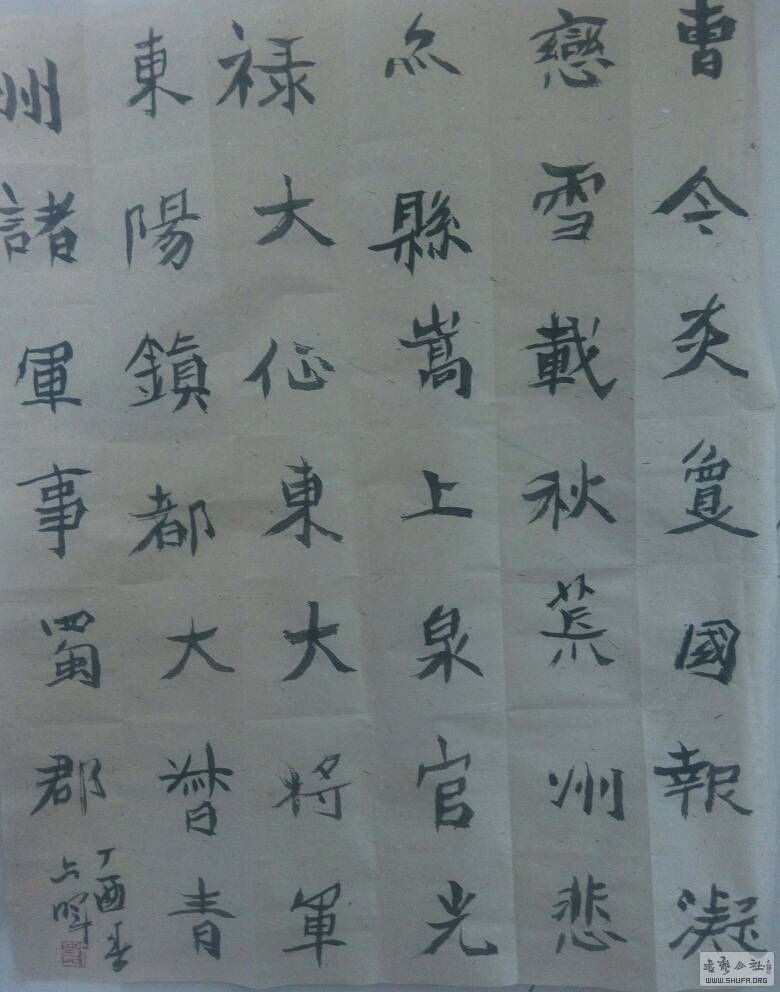 曹令炎夐國報凝
戀雪載秋荒州悲
尒縣嵩上泉官光
禄大征東大將軍
東陽鎮都大督青
州諸軍事蜀郡
丁酉春
书艺公社
WWW.SHUFA.ORG